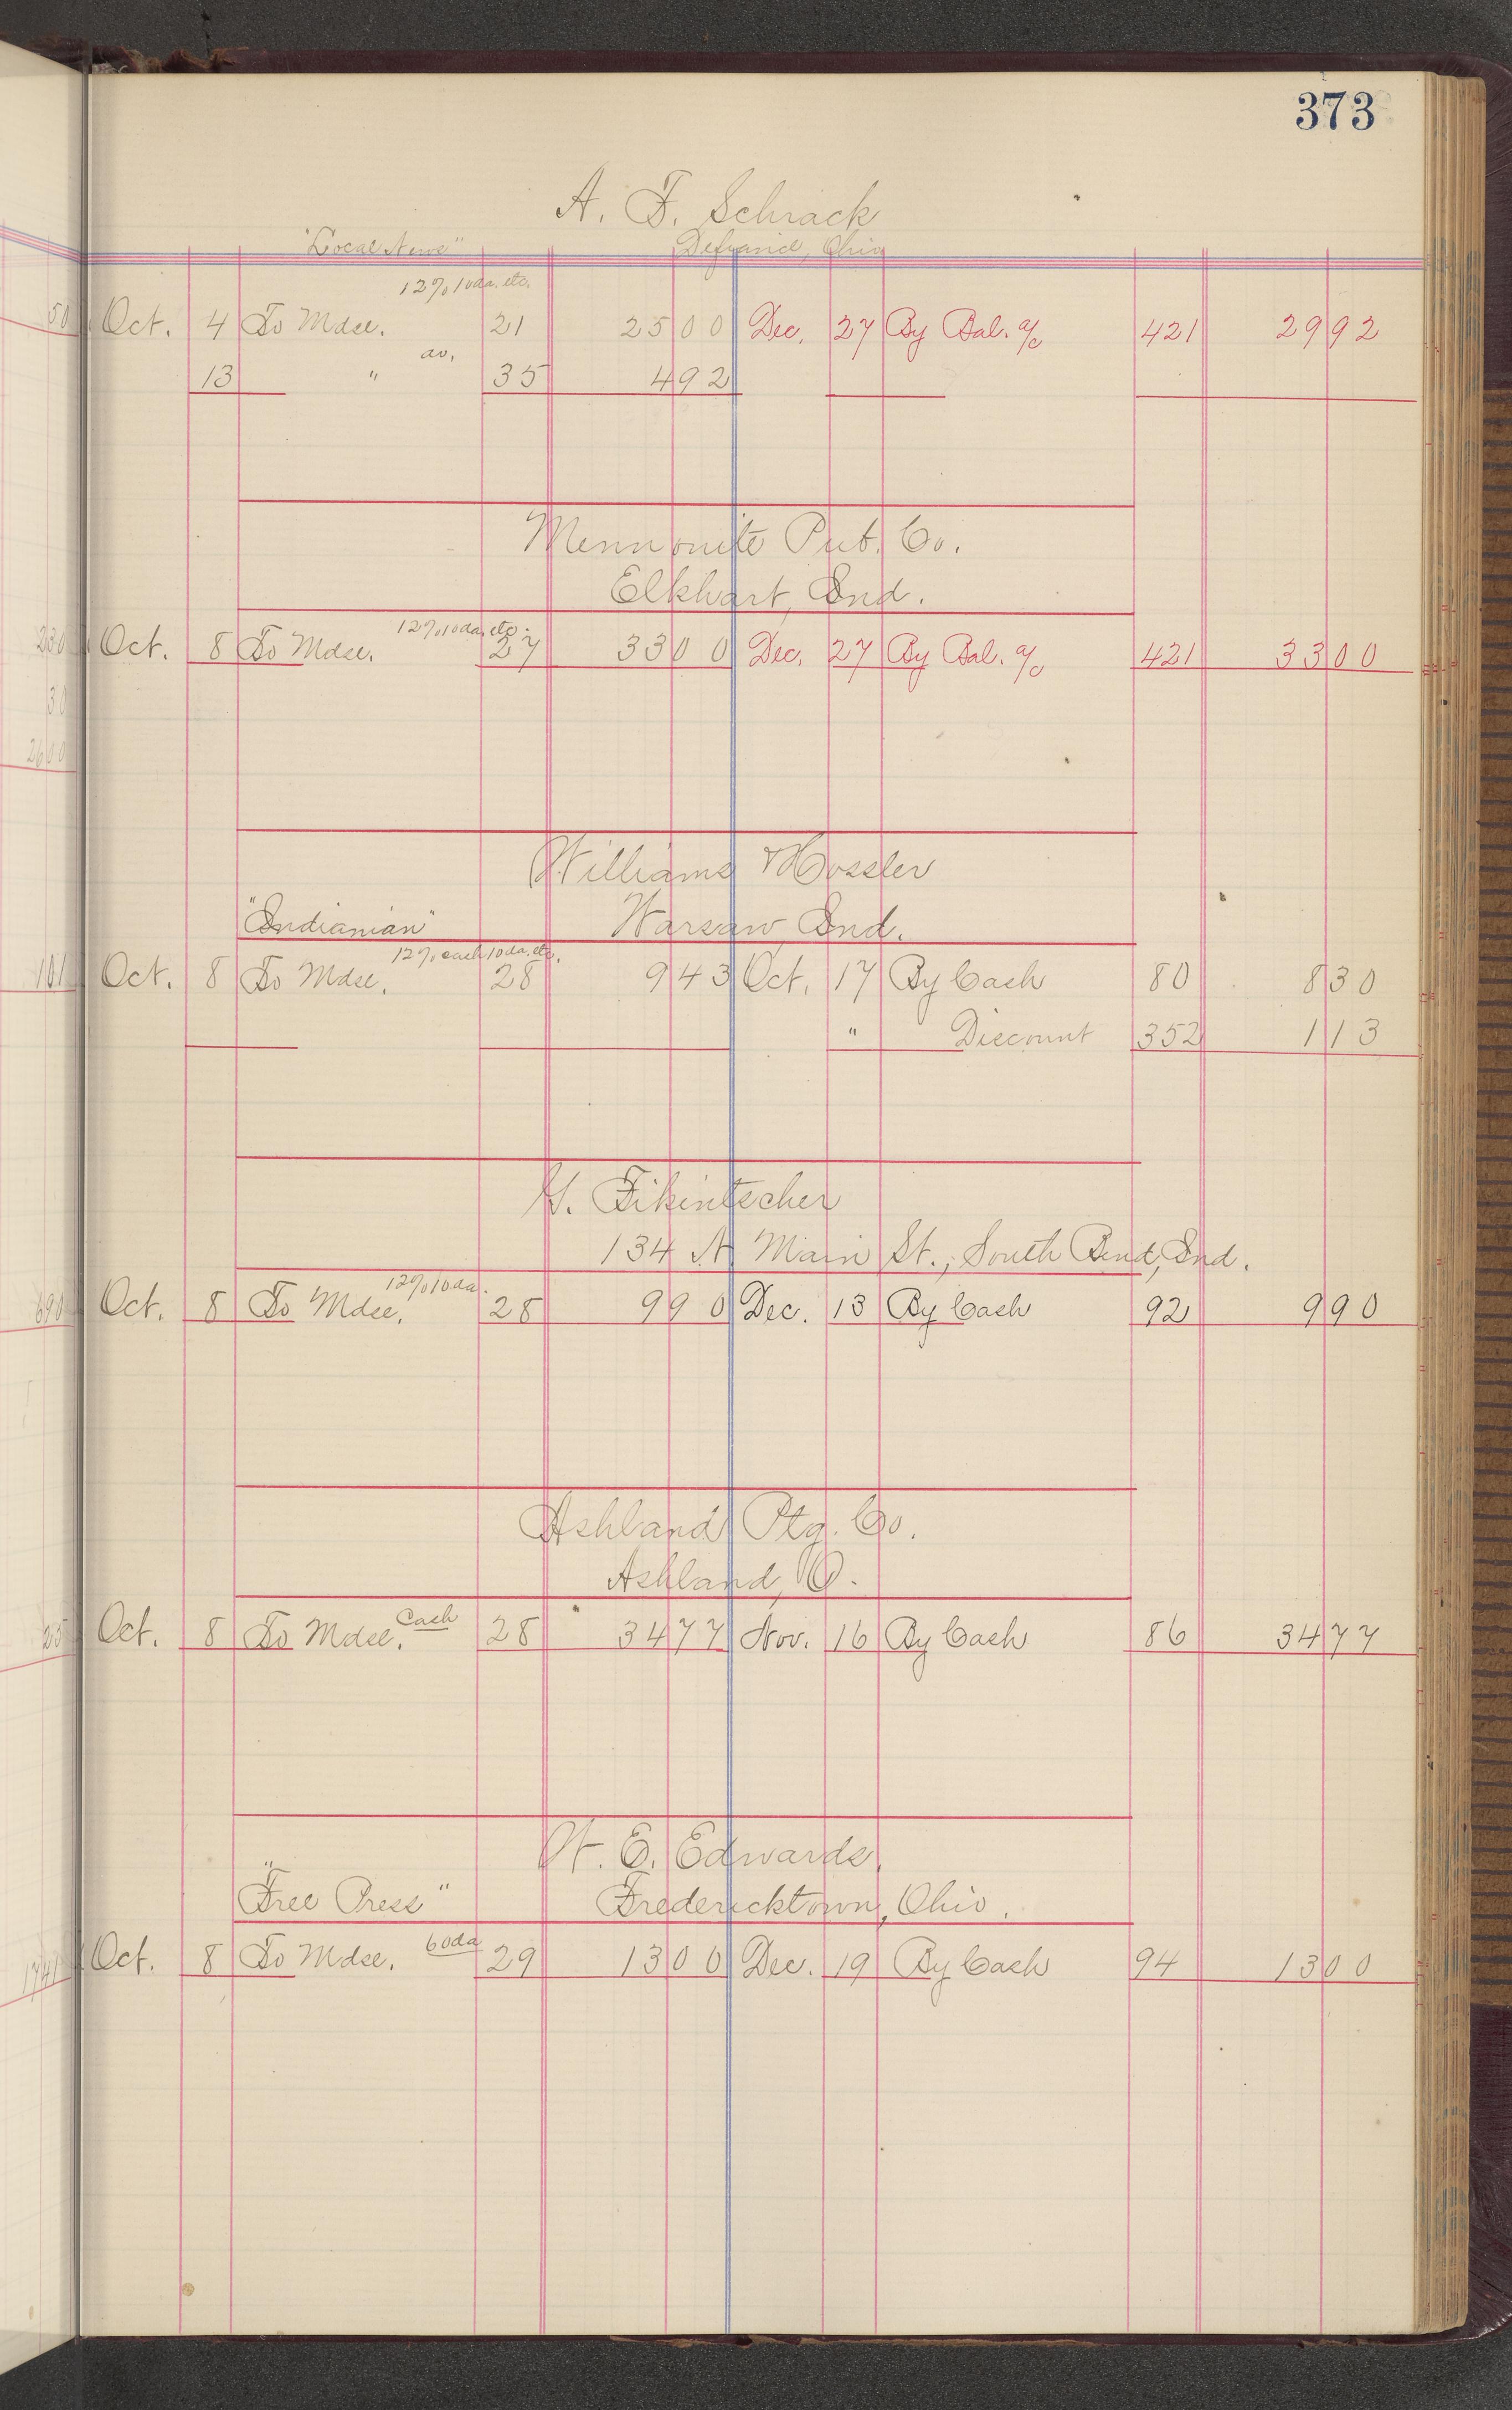 373
A. F. Schrack
"Local News" Defiance, Ohio
12% 10 da. etc.
Oct. 4 To Mdse. 21 25 00 Dec. 27 By Bal. a/c 421 29 92
av.
13 " 35 4 92
Mennonite Pub. Co.
Elkhart, Ind.
12% 10 da. etc.
Oct. 8 To Mdse. 27 33 00 Dec. 27 By Bal. a/c 421 33 00
Williams & Hossler
"Indianian" Warsaw, Ind.
12% cash 10 da. etc.
Oct. 8 To Mdse. 28 9 43 Oct. 17 By Cash 80 8 30
" Discount 352 1 13
134 N Main St., South Bend, Ind.
12% 10 da.
Oct. 8 To Mdse. 28 9 90 Dec. 13 By Cash 92 9 90
Ashland Ptg. Co.
Ashland, O.
Oct. 8 To Mdse. Cash 28 34 77 Nov. 16 By Cash 86 34 77
W. E. Edwards,
"Free Press" Fredericktown, Ohio.
Oct. 8 To Mdse. 60 da 29 13 00 Dec. 19 By Cash 94 13 00